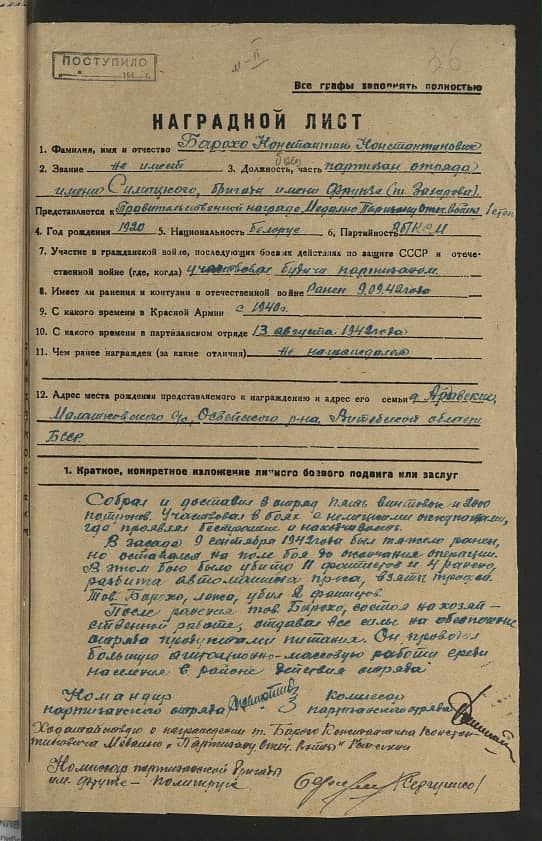 ПОСТУПИЛО
36
Все графы заполнять полностью
НАГРАДНОЙ ЛИСТ
1. Фамилия, имя и отчество Барохо Константин Константинович
2. Звание не имеет 3. Должность, часть боец партизан отряда
имени Силицкого, бригады имени Фрунзе (т. Захарова).
Представляется к Правительственной награде Медалью Партизану Отеч. войны I степ.
4. Год рождения 1920 5. Национальность белорус 6. Партийность ВЛКСМ
7. Участие в гражданской войне, последующих боевых действиях по защите СССР и отече-
ственной войне (где, когда) участвовал будучи партизаном.
8. Имеет ли ранения и контузии в отечественной войне Ранен 9.09.42 года
9. С какого времени в Красной Армии с 1940 г.
10. С какого времени в партизанском отряде 13 августа 1942 года
11. Чем ранее награжден (за какие отличия) не награждался
12. Адрес места рождения представляемого к награждению и адрес его семьи д.
Малашковского с/с, Освейского р-на, Витебской области
БССР
1. Краткое, конкретное изложение личного боевого подвига или заслуг
Собрал и доставил в отряд пять винтовок и 2000
патронов. Участвовал в боях с немецкими оккупантами,
где проявлял бесстрашие и находчивость.
В засаде 9 сентября 1942 года был тяжело ранен,
но оставался на поле боя до окончания операции.
В этом бою было убито 11 фашистов и 4 ранено,
разбита автомашина проса, взяты трофеи.
Тов. Барохо, лично, убил 2 фашистов.
После ранения тов. Барохо, состоя на хозяй-
ственной работе, отдавал все силы на обеспечение
отряда продуктами питания. Он проводил
большую агитационно-массовую работу среди
населения в районе действия отряда.
Командир комиссар
партизанского отряда партизанского отряда
Ходатайствую о награждении т. Барохо Константина Констан-
тиновича Медалью "Партизану Отеч. войны"
Комиссар партизанской бригады
им. Фрунзе - политрук